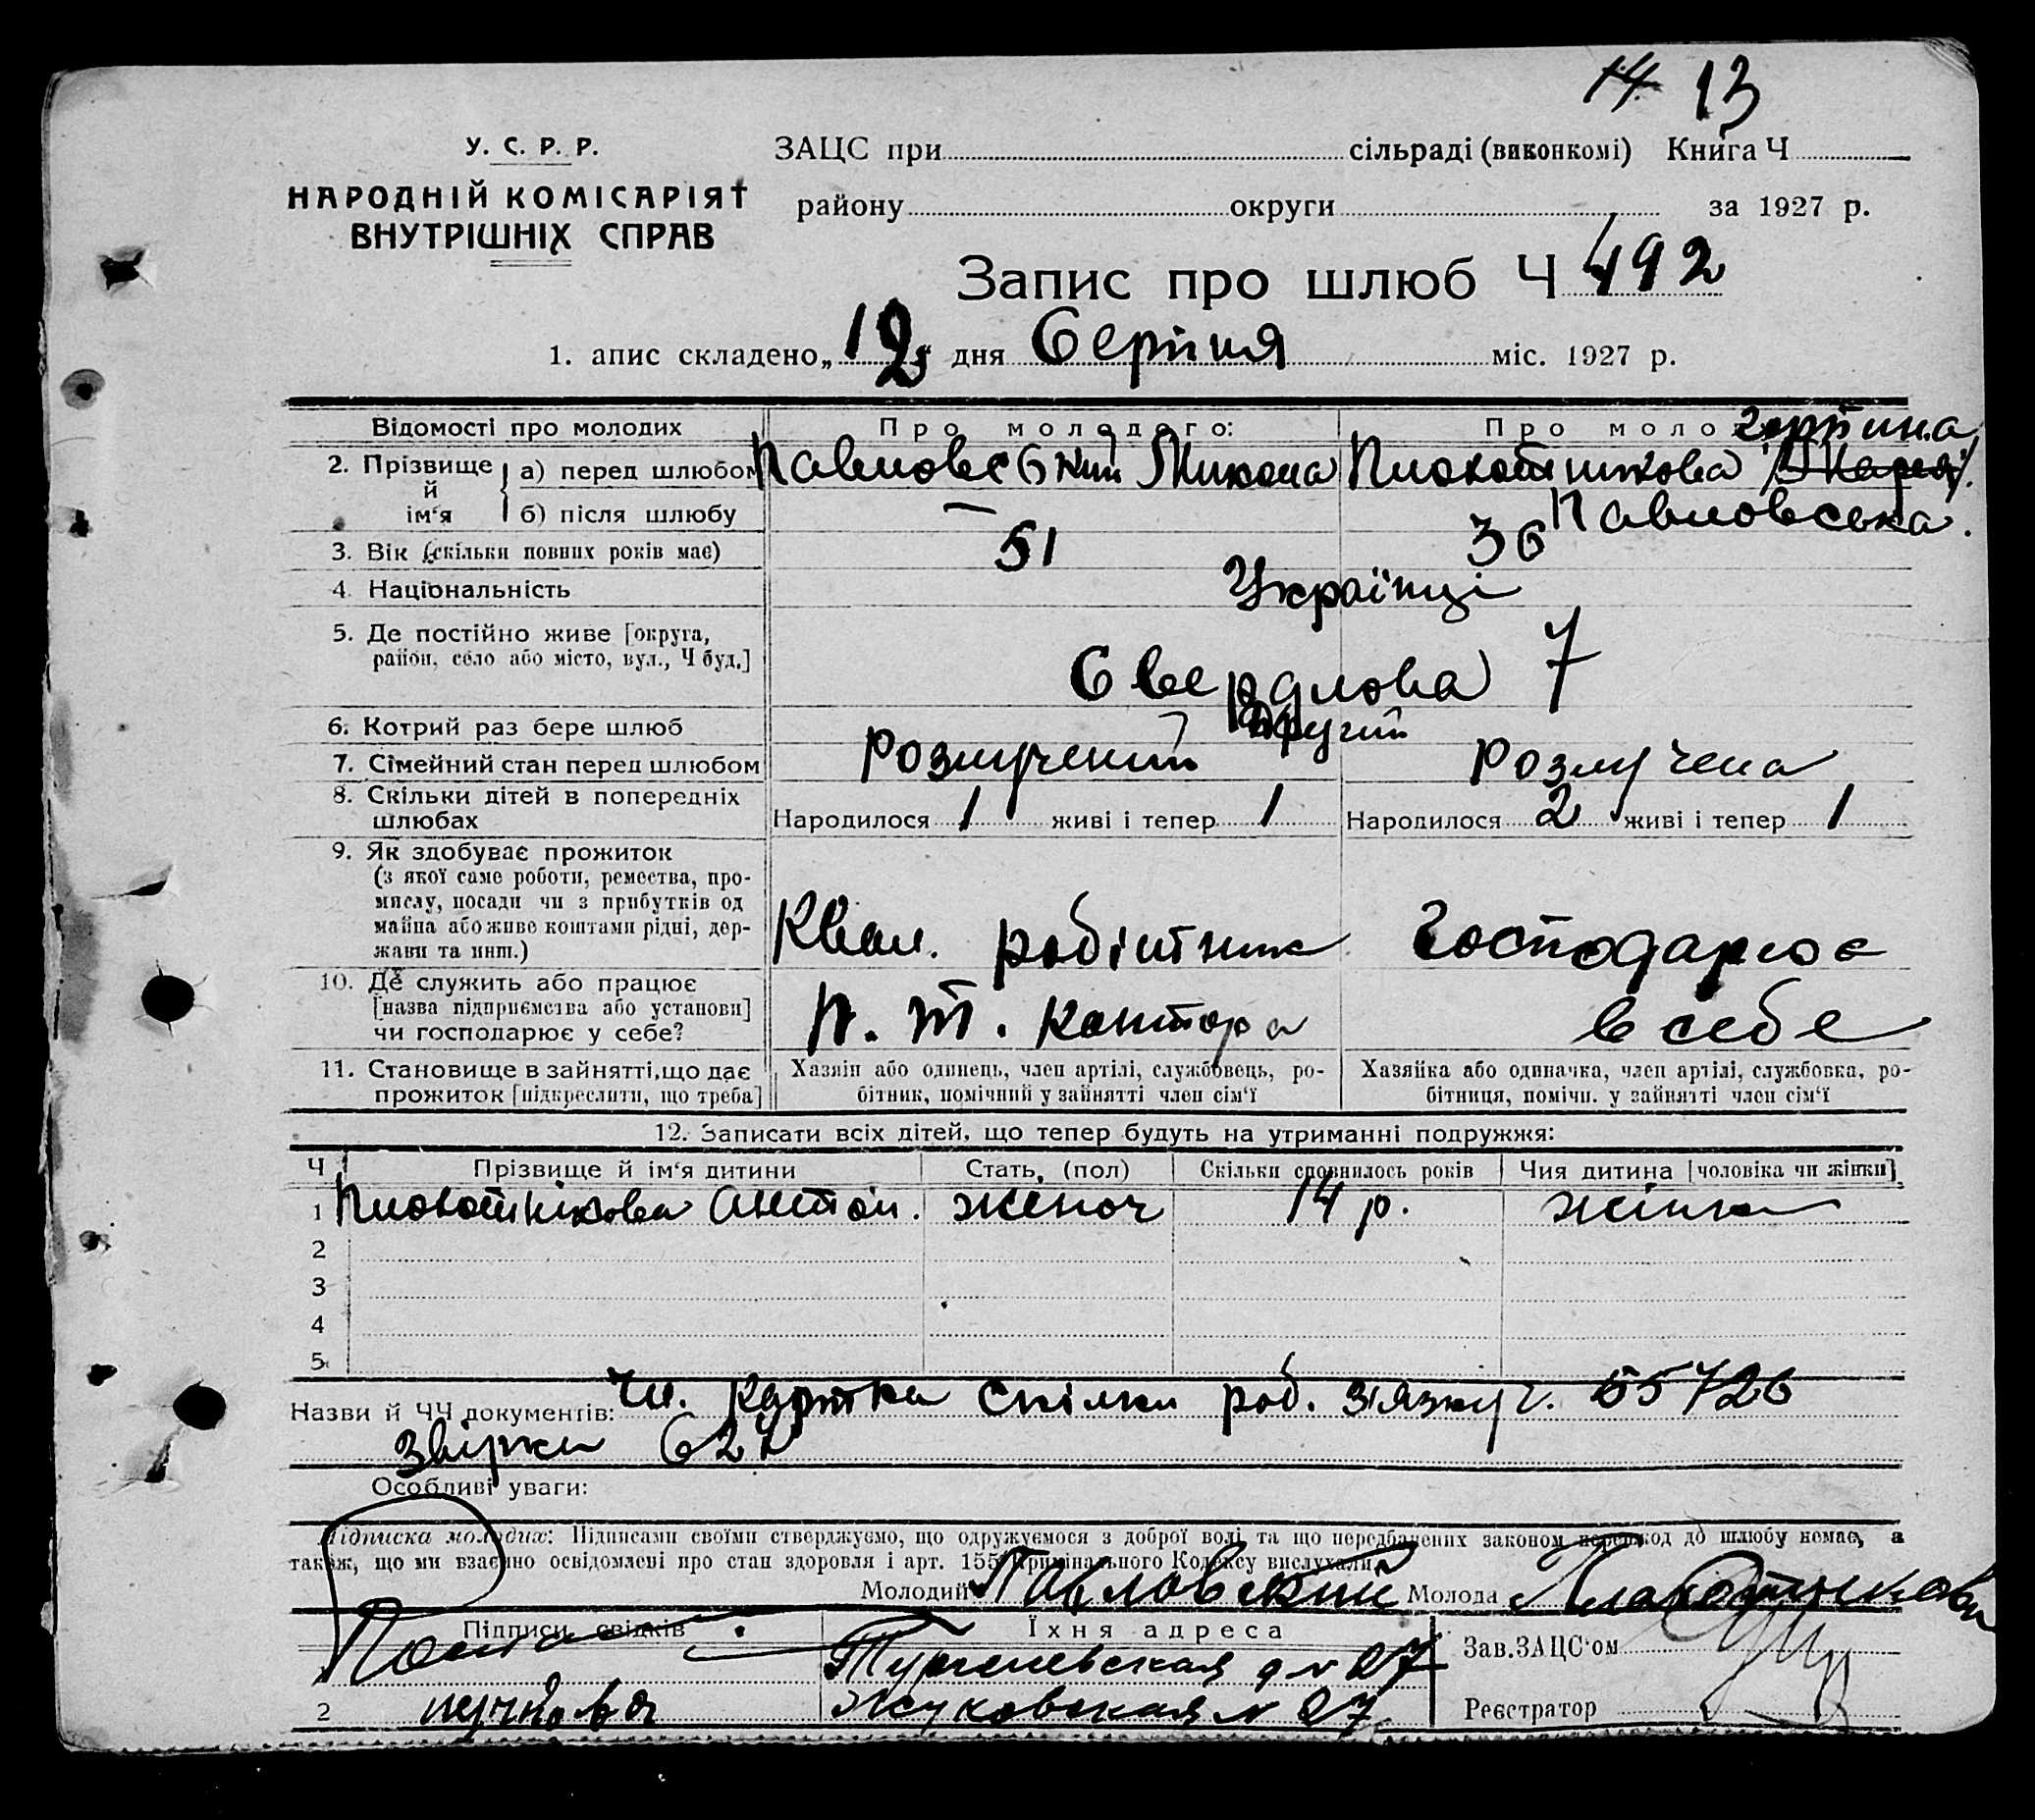 14 13
У. С. Р. Р.
НАРОДНІЙ КОМІСАРІЯТ
ВНУТРІШНІХ СПРАВ
ЗАЦС при сільраді (виконкомі) Книга Ч
району округи за 1927 р.
Запис про шлюб Ч 492
1. апис складено „12“ дня Серпня міс. 1927 р.
Відомості про молодих
Про молодого:
Про моло
2. Прізвище й ім‘я
а) перед шлюбом
Павловський Микола
Плохотнікова
б) після шлюбу
—
Павловська.
3. Вік (скільки повних років має)
51
36
4. Національність
Українці
5. Де постійно живе [округа,
район, село або місто, вул., Ч буд.]
Свердлова 7
6. Котрий раз бере шлюб
Другий
7. Сімейний стан перед шлюбом
Розлучений
Розлучена
8. Скільки дітей в попередніх
шлюбах
Народилося 1 живі і тепер 1
Народилося 2 живі і тепер 1
9. Як здобуває прожиток
(з якої саме роботи, ремества, про-
мислу, посади чи з прибутків од
майна або живе коштами рідні, дер-
жави та инш.)
Квал. робітник
Господарює
10. Де служить або працює
[назва підприємства або установи]
чи господарює у себе?
П. Т. Контора
в себе
11. Становище в зайнятті, що дає
прожиток [підкреслити, що треба]
Хазяїн або одинець, член артілі, службовець, ро-
бітник, помічний у зайнятті член сім‘ї
Хазяйка або одиначка, член артілі, службовка, ро-
бітниця, помічн. у зайнятті член сім‘ї
12. Записати всіх дітей, що тепер будуть на утриманні подружжя:
Ч Прізвище й ім‘я дитини Стать, (пол) Скільки сповнилось років Чия дитина [чоловіка чи жінки]
1 Плохотнікова Антон. жіноч 14 р. жінки
2
3
4
5
Назви й ЧЧ документів: Чл. картка спілки роб. зв'язку ч. 55726
Звірки 622
Особливі уваги:
Підписка молодих: Підписами своїми стверджуємо, що одружуємося з доброї волі, та що передбачених законом перешкод до шлюбу немає, а
також, що ми взаємно освідомлені про стан здоровля і арт. 155 Кримінального Кодексу вислухали.
Молодий Павловский Молода Плахотникова
Підписи свідків Їхня адреса
Тургеневская д № 27
2 Жуковская № 27
Зав. ЗАЦС‘ом
Реєстратор